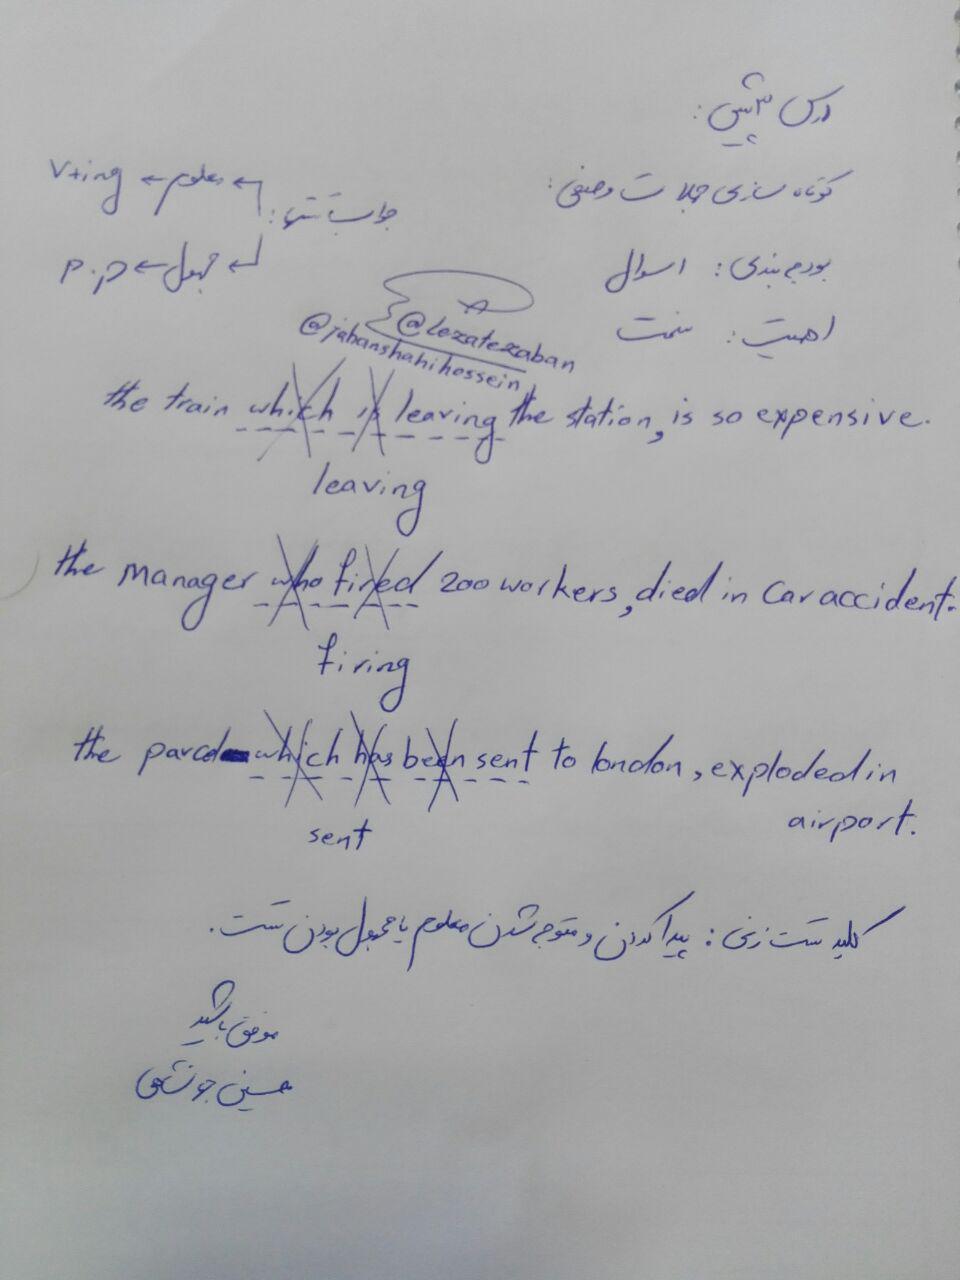 درس ۳ پیش:
کوتاه سازی جملات وصفی:
بودجه بندی: ۱ سوال
اهمیت: سخت
جواب تستها:
معلوم ← v+ing
مجهول ← p.p
@lezatezaban
@jahanshahihossein
the train which is leaving the station, is so expensive.
leaving
the manager who fired 200 workers, died in car accident.
firing
the parcel which has been sent to london, exploded in
airport.
sent
کلید تست زنی: پیدا کردن و متوجه شدن معلوم یا مجهول بودن تست.
موفق باشید
حسین جهانشاهی